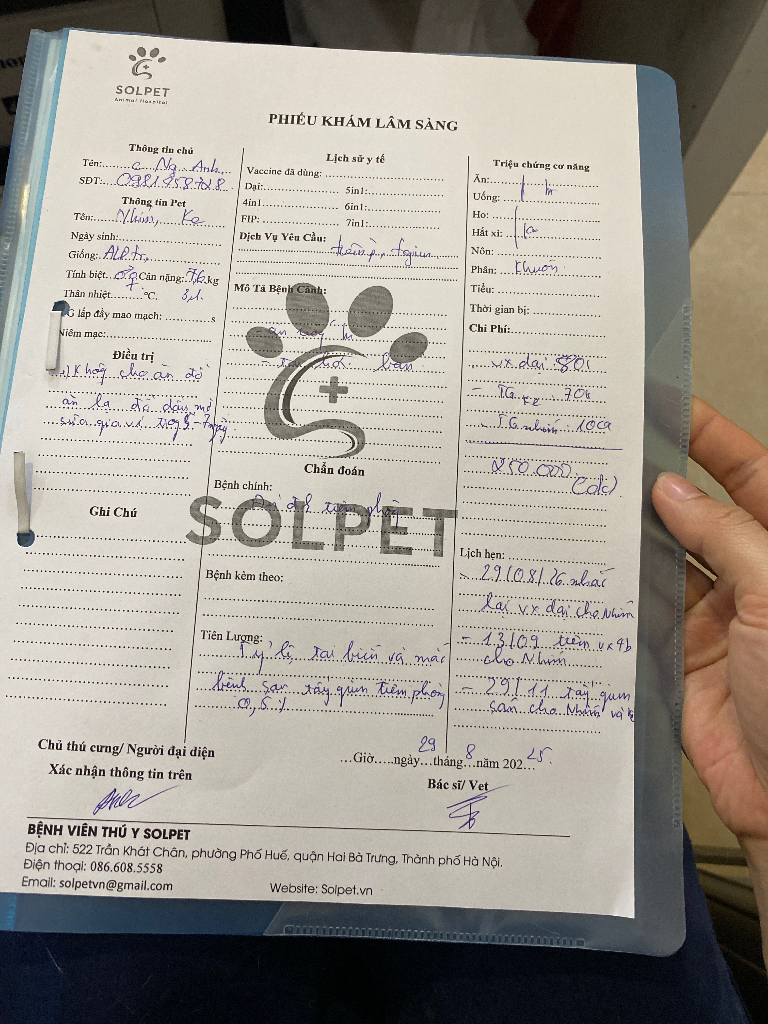 SOLPET
Animal Hospital
PHIẾU KHÁM LÂM SÀNG
Thông tin chủ
Tên: c Ng. Anh
SĐT: 0981958728
Thông tin Pet
Tên: Nhím, Ke
Ngày sinh:
Giống:
Tính biệt Cân nặng: 7,6 kg
Thân nhiệt °C,
G lấp đầy mao mạch: s
Niêm mạc:
Điều trị
Không cho ăn đồ
ăn lạ đồ dầu mỡ
sữa gia vị trog 5-7 ngày
Ghi Chú
Lịch sử y tế
Vaccine đã dùng:
Dại: 5in1:
4in1 6in1:
FIP: 7in1:
Dịch Vụ Yêu Cầu: tiêm p,
Mô Tả Bệnh Cảnh:
- ăn uống
Chẩn đoán
Bệnh chính:
tiêm phòng
SOLPET
Bệnh kèm theo:
Tiên Lượng:
Tỷ lệ tai biến và mắc
bệnh sau tẩy giun tiêm phòng
0,5 %
Triệu chứng cơ năng
Ăn:
Uống:
Ho:
Hắt xì:
Nôn:
Phân: Khuôn
Tiểu:
Thời gian bị:
Chi Phí:
- vx dại 80
- TG Ke 70
- TG nhím: 100
250.000
Lịch hẹn:
- 29/08/26 nhắc
lại vx dại cho Nhím
- 13/09 tiêm vx 4b
cho Nhím
- 29/11 tẩy giun
sán cho Nhím và Ke
Chủ thú cưng/ Người đại diện
Xác nhận thông tin trên
Giờ ngày 29 tháng 8 năm 202 25
Bác sĩ/ Vet
BỆNH VIỆN THÚ Y SOLPET
Địa chỉ: 522 Trần Khát Chân, phường Phố Huế, quận Hai Bà Trưng, Thành phố Hà Nội.
Điện thoại: 086.608.5558
Email: solpetvn@gmail.com Website: Solpet.vn